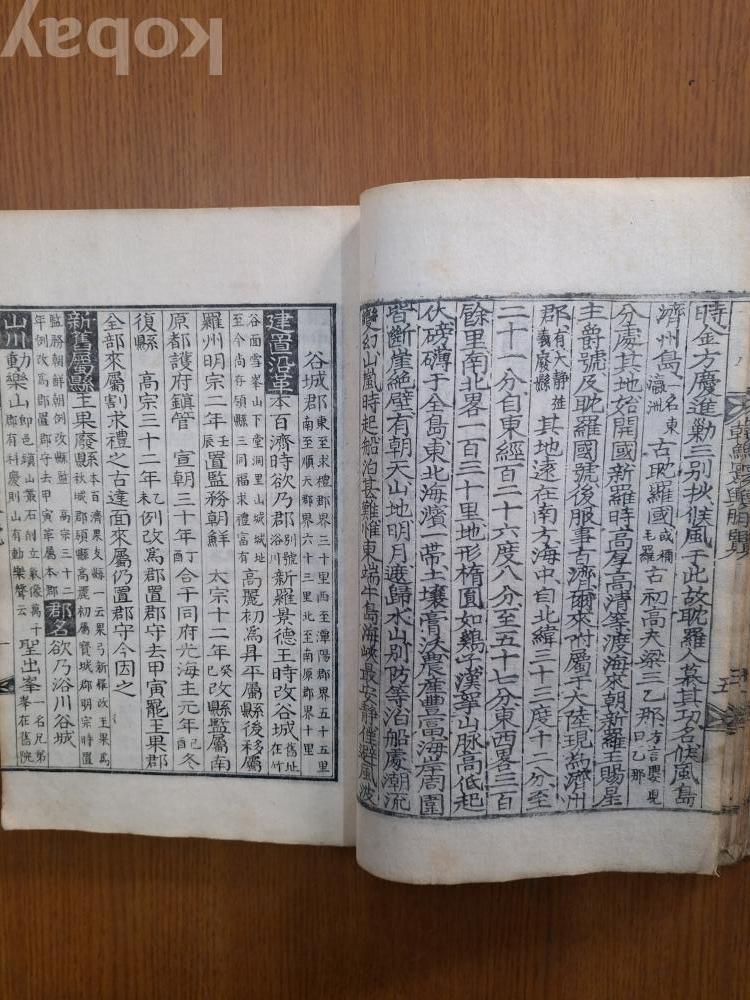 kobay
時金方慶進勦三別抄候風于此故耽羅人慕其功名候風島
濟州島一名東瀛洲古耽羅國或稱毛羅古初高夫梁三乙那方言嬰兒曰乙那
分處其地始開國新羅時高厚高淸等渡海來朝新羅王賜星
主爵號及耽羅國號後服事百濟爾來附屬于大陸現爲濟州
郡有大靜旌義廢縣其地遠在南方海中自北緯三十三度十二分至
三十一分自東經百二十六度八分至五十七分東西畧三百
餘里南北畧一百三十里地形橢圓如鷄子漢拏山脉高低起
伏磅礴于全島東北海濱一帶土壤膏沃農產豊富海岸周圍
皆斷崖絶壁有朝天山地明月渡歸水山別防等泊船處潮流
變幻山嵐時起船泊甚難惟東端牛島海峽最安靜僅避風波
谷城郡東至求禮郡界三十里西至潭陽郡界五十五里南至順天郡界六十三里北至南原郡界十里
建置沿革本百濟時欲乃郡別號浴川新羅景德王時改谷城舊址在竹
谷面雪峯山下堂洞里山城城址至今尚存領縣三同福求禮富有高麗初爲昇平屬縣後移屬
羅州明宗二年壬辰置監務朝鮮太宗十二年癸巳改縣監屬南
原都護府鎭管宣朝三十年丁合于同府光海主元年己酉冬
復縣高宗三十二年乙例改爲郡置郡守去甲寅罷玉果郡
全部來屬割求禮之古達面來屬仍置郡守今因之
新舊屬縣玉果廢縣本百濟果支縣一云果兮新羅改玉果爲秋城郡領縣高麗初屬寶城郡明宗時置
監務朝鮮朝例改縣監高宗三十二年例改爲郡置郡守甲寅屬本郡郡名欲乃浴川谷城
山川動樂山卽邑頭山叢石削立氣像萬千郡有科慶則山有動樂聲云聖出峯一名兄弟峯在舊院